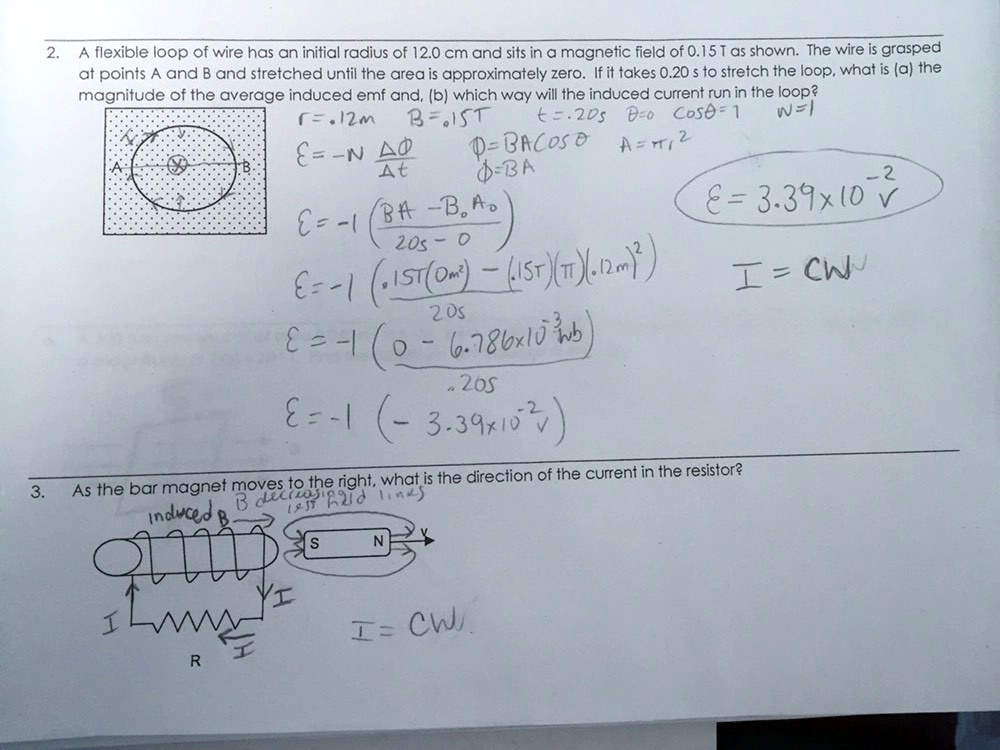 2. A flexible loop of wire has an initial radius of 12.0 cm and sits in a magnetic field of 0.15 T as shown. The wire is grasped
at points A and B and stretched until the area is approximately zero. If it takes 0.20 s to stretch the loop, what is (a) the
magnitude of the average induced emf and, (b) which way will the induced current run in the loop?
r = .12m B = .15T t = .20s θ=0 cosθ=1 N=1
I
A
B
ε = -N ΔΦ/Δt Φ = BA cosθ A = πr²
Φ = BA
ε = -1 (BA - B₀A₀ / 20s - 0)
ε = 3.39x10⁻² V
ε = -1 (.15T(0m²) - (.15T)(π)(.12m)² / 20s)
I = CW
ε = -1 (0 - 6.786x10⁻³ wb / .20s)
ε = -1 (- 3.39x10⁻² V)
3. As the bar magnet moves to the right, what is the direction of the current in the resistor?
B decreasing
less field lines
induced B
S N v
I
I
I
R
I = CW